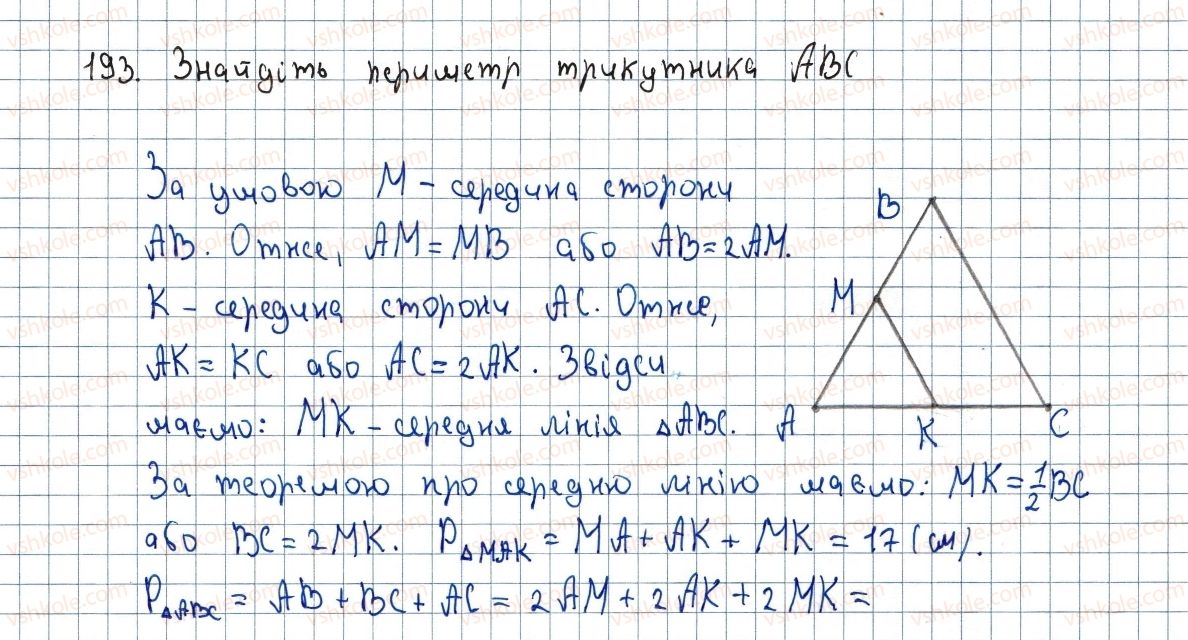 193. Знайдіть периметр трикутника ABC
За умовою M – середина сторони
AB. Отже, AM = MB або AB = 2AM.
K – середина сторони AC. Отже,
AK = KC або AC = 2AK. Звідси
маємо: MK – середня лінія △ABC.
За теоремою про середню лінію маємо: MK = 1/2 BC
або BC = 2MK. P△MAK = MA + AK + MK = 17 (см).
P△ABC = AB + BC + AC = 2AM + 2AK + 2MK =
B
M
A
K
C
vshkole.com